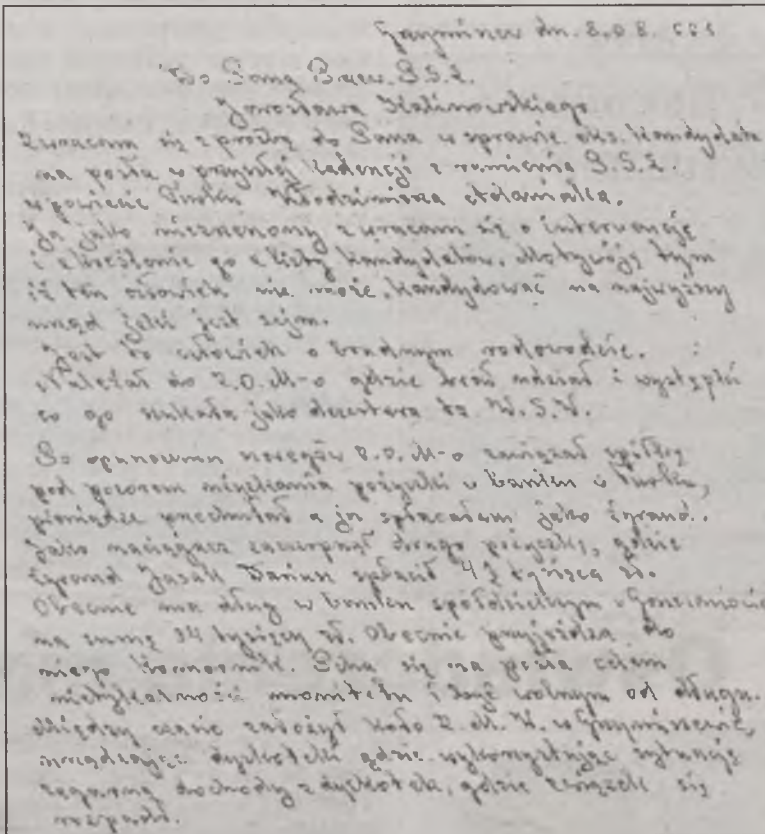 Grzymiszew dn. 8.08.
Do Pana Prezesa P.S.L.
Jarosława Kalinowskiego
Zwracam się z prośbą do Pana w sprawie eks. kandydata
na posła w przyszłej kadencji z ramienia P.S.L.
w powiecie Turku Włodzimierza
Ja jako zwracam się o interwencję
i skreślenie go z listy kandydatów. Motywóję tym
iż ten człowiek nie może, kandydować na najwyższy
urząd jakiś jest sejm.
Jest to człowiek o brudnym rodowodzie.
Należał do Z.O.M-o gdzie brał udział i wystąpił
co go szukała jako dezertera W.S.W.
Po opanowaniu Z.O.M-o zawiązał spółkę
pod pozorem uzyskania pożyczki w banku w Turku,
pieniądze a ja spłacałem jako żyrand.
Jako naciągacz zaczerpnął drugą pożyczkę, gdzie
żyrand Jasak spłacił 42 tysiące zł.
Obecnie ma długi w banku spółdzielczym
na sumę 34 tysięcy zł. Obecnie przyjeżdża do
niego komornik. Pcha się na posła celem
nietykalność i być wolnym od długu.
Między czasie założył koło Z.M.W. w Grzymiszewie,
urządzając dyskoteki gdzie wykorzystując sytuację
zagarną dochody z dyskotek, gdzie związek się
rozpadł.